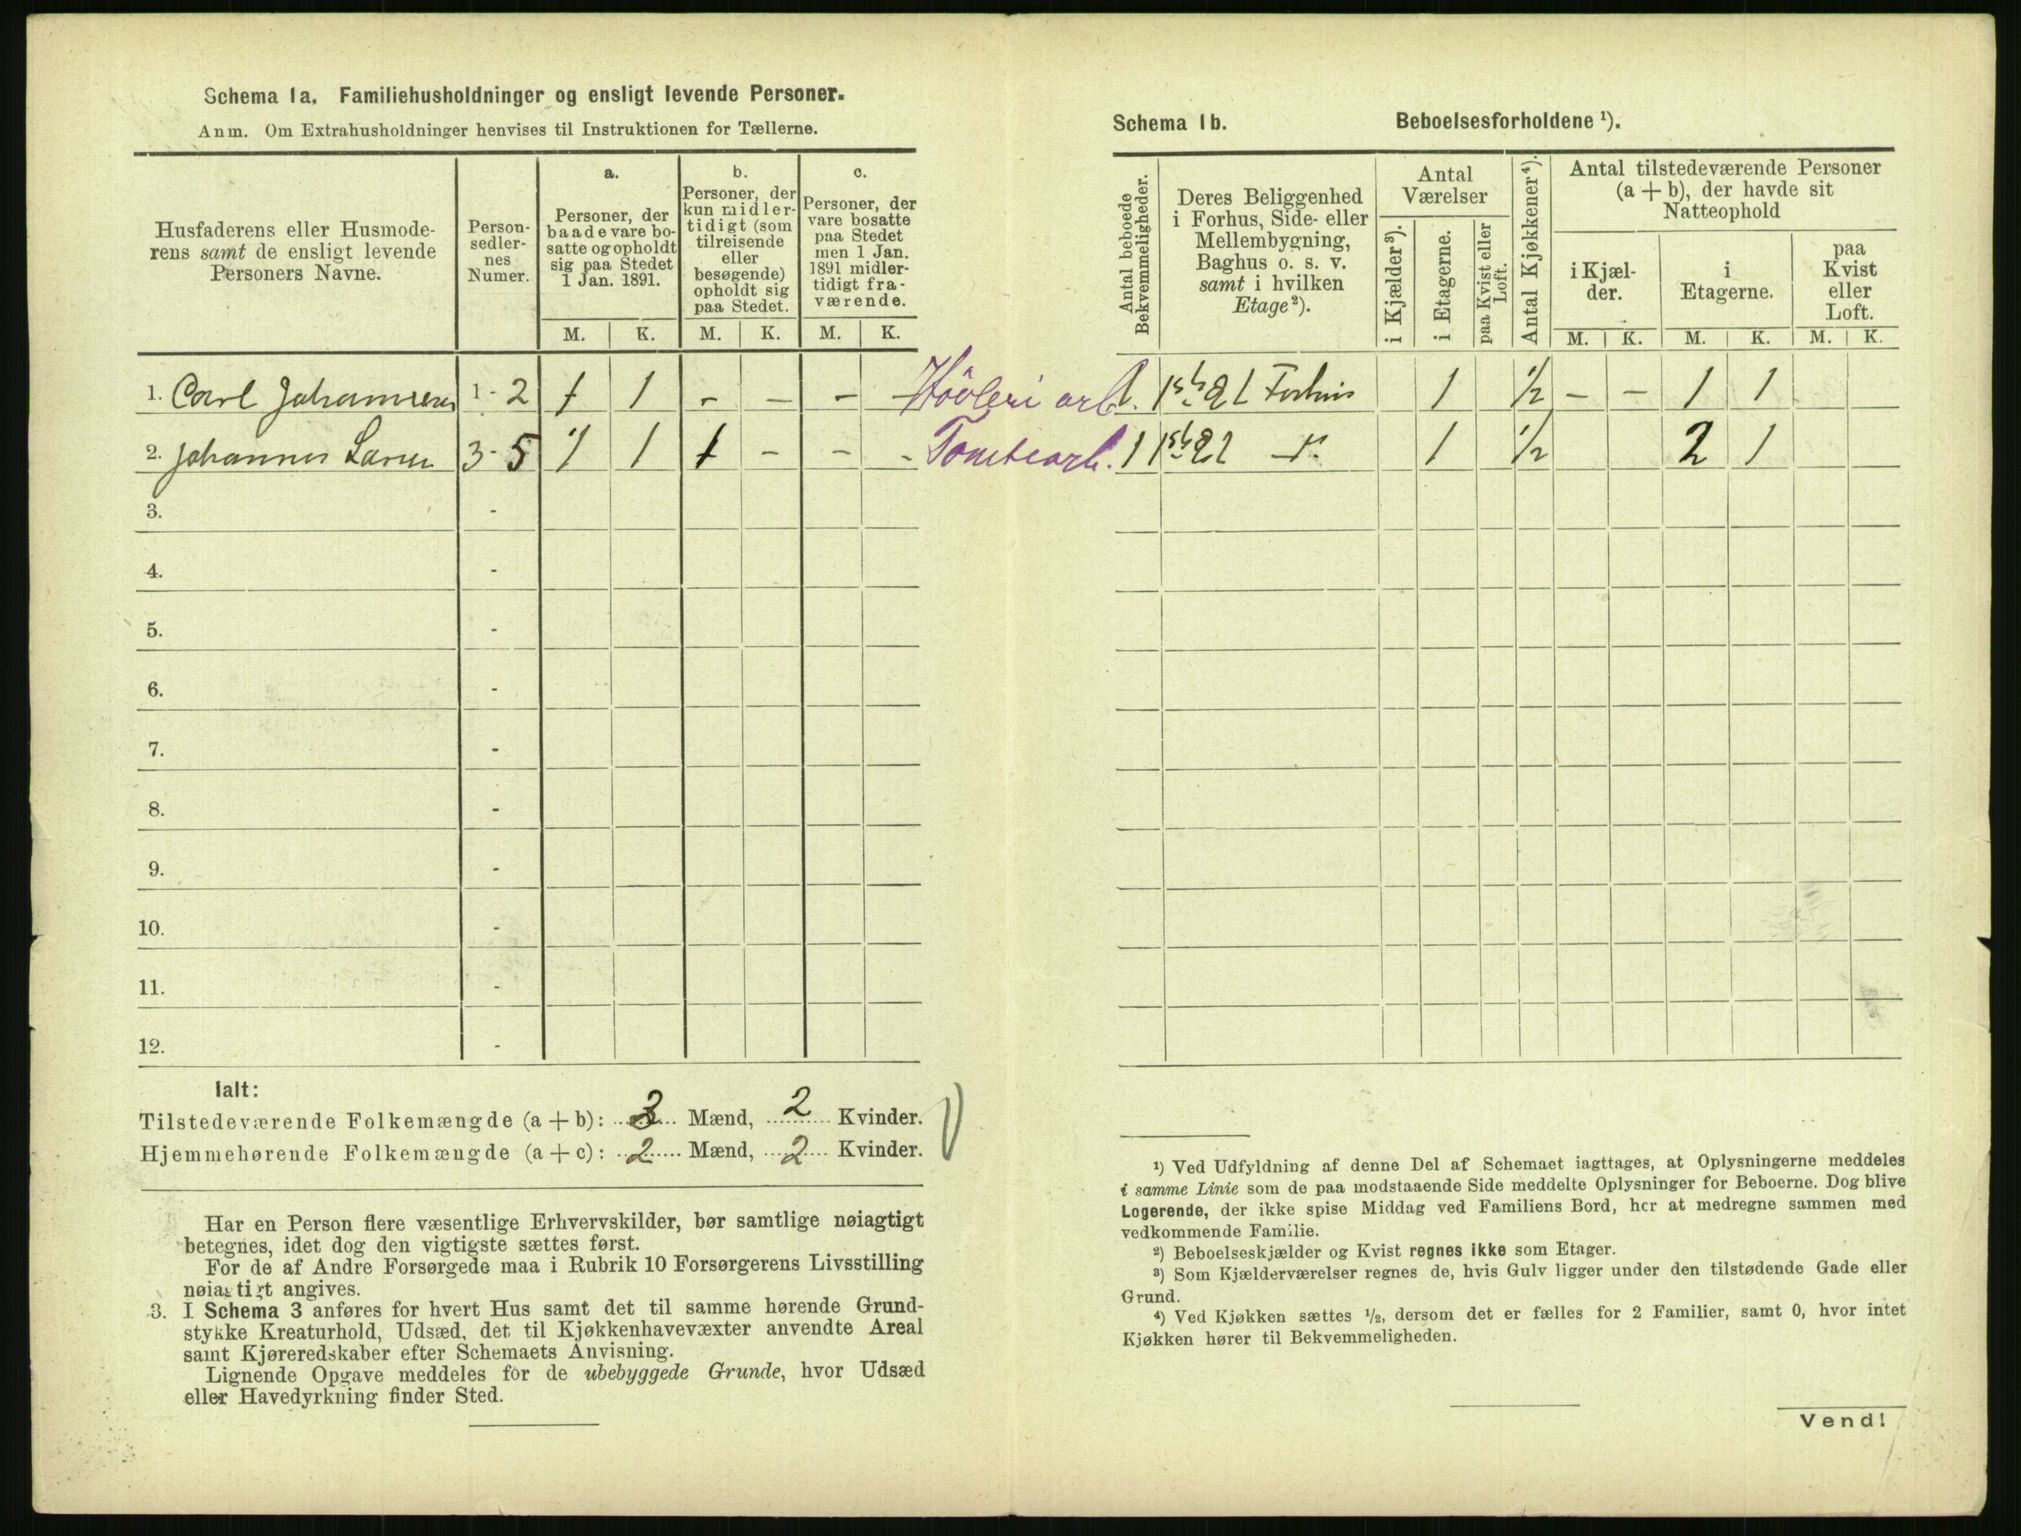 Schema 1a. Familiehusholdninger og ensligt levende Personer.
Anm. Om Extrahusholdninger henvises til Instruktionen for Tællerne.
Husfaderens eller Husmode-
rens samt de ensligt levende
Personers Navne.
Person-
sedler-
nes
Numer.
a.
Personer, der
baade vare bo-
satte og opholdt
sig paa Stedet
1 Jan. 1891.
b.
Personer, der
kun midler-
tidigt (som
tilreisende
eller
besøgende)
opholdt sig
paa Stedet.
c.
Personer, der
vare bosatte
paa Stedet
men 1 Jan.
1891 midler-
tidigt fra-
værende.
M. K. M. K. M. K.
1. Carl Johannesen 1 - 2 1 1 - - - - Høvleri arb.
2. Johannes Larsen 3 - 5 1 1 1 - - - Tomtearb.
3. -
4. -
5. -
6. -
7. -
8. -
9. -
10. -
11. -
12. -
Ialt:
Tilstedeværende Folkemængde (a + b): 3 Mænd, 2 Kvinder.
Hjemmehørende Folkemængde (a + c): 2 Mænd, 2 Kvinder.
Har en Person flere væsentlige Erhvervskilder, bør samtlige nøiagtigt
betegnes, idet dog den vigtigste sættes først.
For de af Andre Forsørgede maa i Rubrik 10 Forsørgerens Livsstilling
nøiagtigt angives.
3. I Schema 3 anføres for hvert Hus samt det til samme hørende Grund-
stykke Kreaturhold, Udsæd, det til Kjøkkenhavevæxter anvendte Areal
samt Kjøreredskaber efter Schemaets Anvisning.
Lignende Opgave meddeles for de ubebyggede Grunde, hvor Udsæd
eller Havedyrkning finder Sted.
Schema 1b. Beboelsesforholdene ¹).
Antal beboede
Bekvemmeligheder.
Deres Beliggenhed
i Forhus, Side- eller
Mellembygning,
Baghus o. s. v.
samt i hvilken
Etage²).
Antal
Værelser
i Kjælder³).
i Etagerne.
paa Kvist eller
Loft.
Antal Kjøkkener⁴).
Antal tilstedeværende Personer
(a + b), der havde sit
Natteophold
i Kjæl-
der.
i
Etagerne.
paa
Kvist
eller
Loft.
M. K. M. K. M. K.
1 Forhus 1 ½ - - 1 1
1 1 ½ 2 1
¹) Ved Udfyldning af denne Del af Schemaet iagttages, at Oplysningerne meddeles
i samme Linie som de paa modstaaende Side meddelte Oplysninger for Beboerne. Dog blive
Logerende, der ikke spise Middag ved Familiens Bord, her at medregne sammen med
vedkommende Familie.
²) Beboelseskjælder og Kvist regnes ikke som Etager.
³) Som Kjælderværelser regnes de, hvis Gulv ligger under den tilstødende Gade eller
Grund.
⁴) Ved Kjøkken sættes ½, dersom det er fælles for 2 Familier, samt 0, hvor intet
Kjøkken hører til Bekvemmeligheden.
Vend!